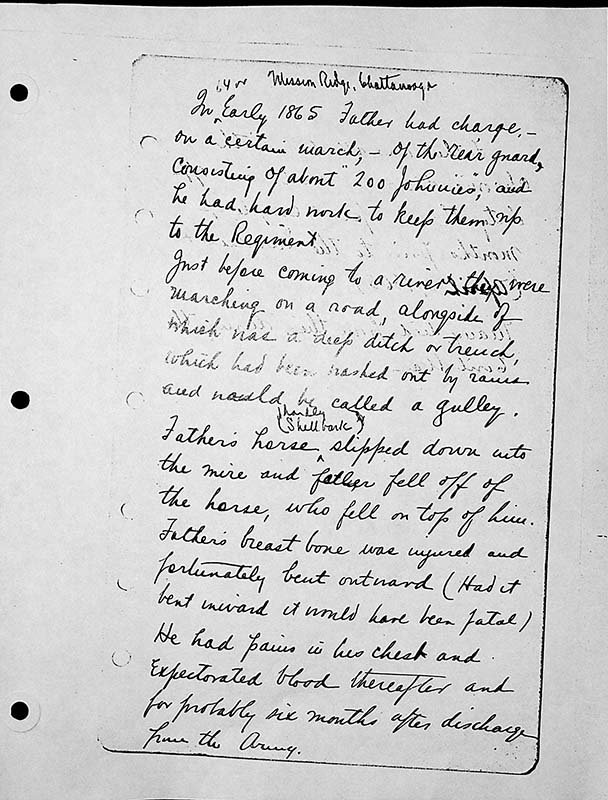 64 or Mission Ridge, Chattanooga
In Early 1865 Father had charge, –
on a certain march, – of the rear guard,
consisting of about "200 Johnnies", and
he had hard work to keep them up
to the Regiment
Just before coming to a river they were
marching on a road, alongside of
which was a deep ditch or trench,
which had been washed out by rains
and would be called a gulley.
(Shellbark)
Father's horse slipped down into
the mire and father fell off of
the horse, who fell on top of him.
Father's breast bone was injured and
fortunately bent outward (Had it
bent inward it would have been fatal)
He had pains in his chest and
Expectorated blood thereafter and
for probably six months after discharge
from the Army.